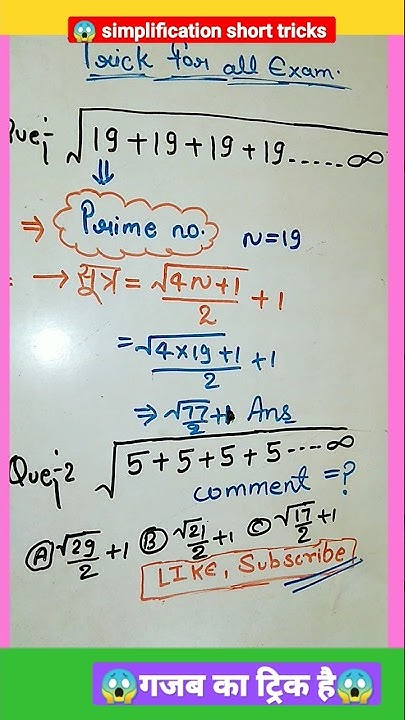 😱 simplification short tricks
Trick for all Exam.
Que-1 √19+19+19+19.....∞
⇓
⇒ Prime no. N=19
→ सूत्र = √4N+1/2 + 1
= √4×19+1/2 + 1
⇒ √77/2+1 Ans
Que-2 √5+5+5+5....∞
comment = ?
Ⓐ √29/2 + 1 Ⓑ √21/2 + 1 Ⓒ √17/2 + 1
LIKE, Subscribe
😱गजब का ट्रिक है😱